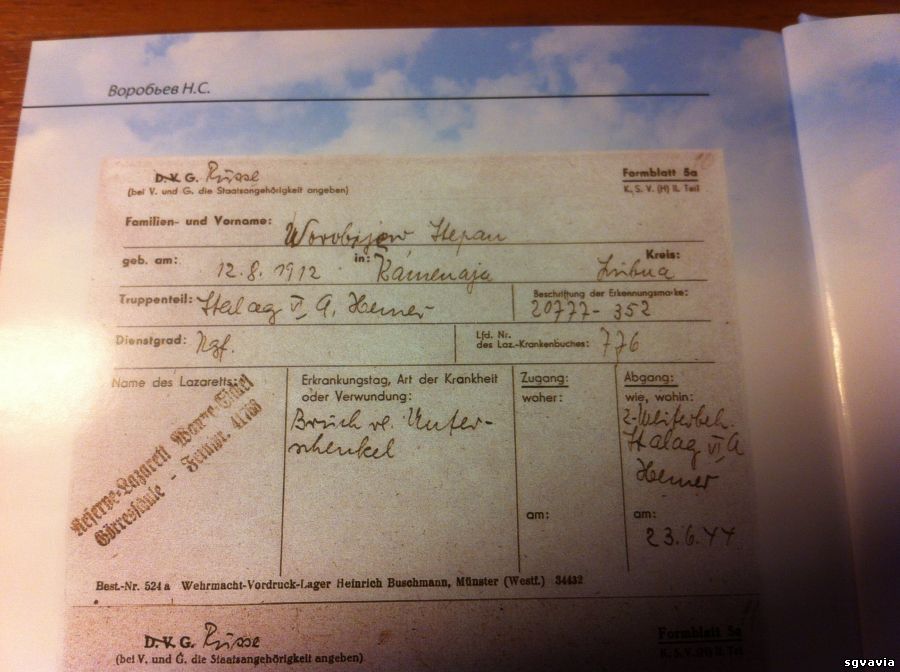 Воробьев Н.С.
D. V. G. Russe
(bei V. und G. die Staatsangehörigkeit angeben)
Formblatt 5a
K. S. V. (H) II. Teil
Familien- und Vorname: Worobjow Stepan
geb. am: 12.8.1912 in: Kamenaja Kreis:
Truppenteil: Stalag VI A, Hemer
Beschriftung der Erkennungsmarke:
20777- 352
Dienstgrad: Kgf.
Lfd. Nr.
des Laz.-Krankenbuches: 776
Name des Lazaretts:
Reserve-Lazarett Wanne-Eickel
Görresschule - Fernspr. 41768
Erkrankungstag, Art der Krankheit
oder Verwundung:
Bruch re. Unter-
schenkel
Zugang:
woher:
am:
Abgang:
wie, wohin:
z. Weiterbeh.
Stalag VI A
Hemer
am:
23.6.44
Best.-Nr. 524a Wehrmacht-Vordruck-Lager Heinrich Buschmann, Münster (Westf.) 34432
D. V. G. Russe
(bei V. und G. die Staatsangehörigkeit angeben)
Formblatt 5a
K. S. V. (H) II. Teil
sgvavia